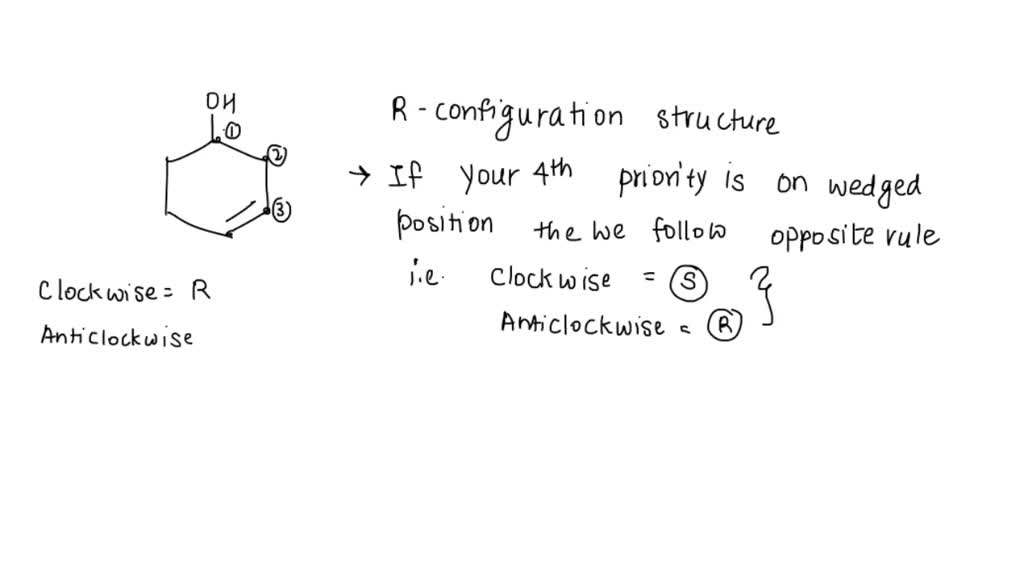 OH
①
②
③
R - configuration structure
→ If your 4th priority is on wedged
position the we follow opposite rule
i.e. Clockwise = Ⓢ
Anticlockwise = Ⓡ
Clockwise = R
Anticlockwise